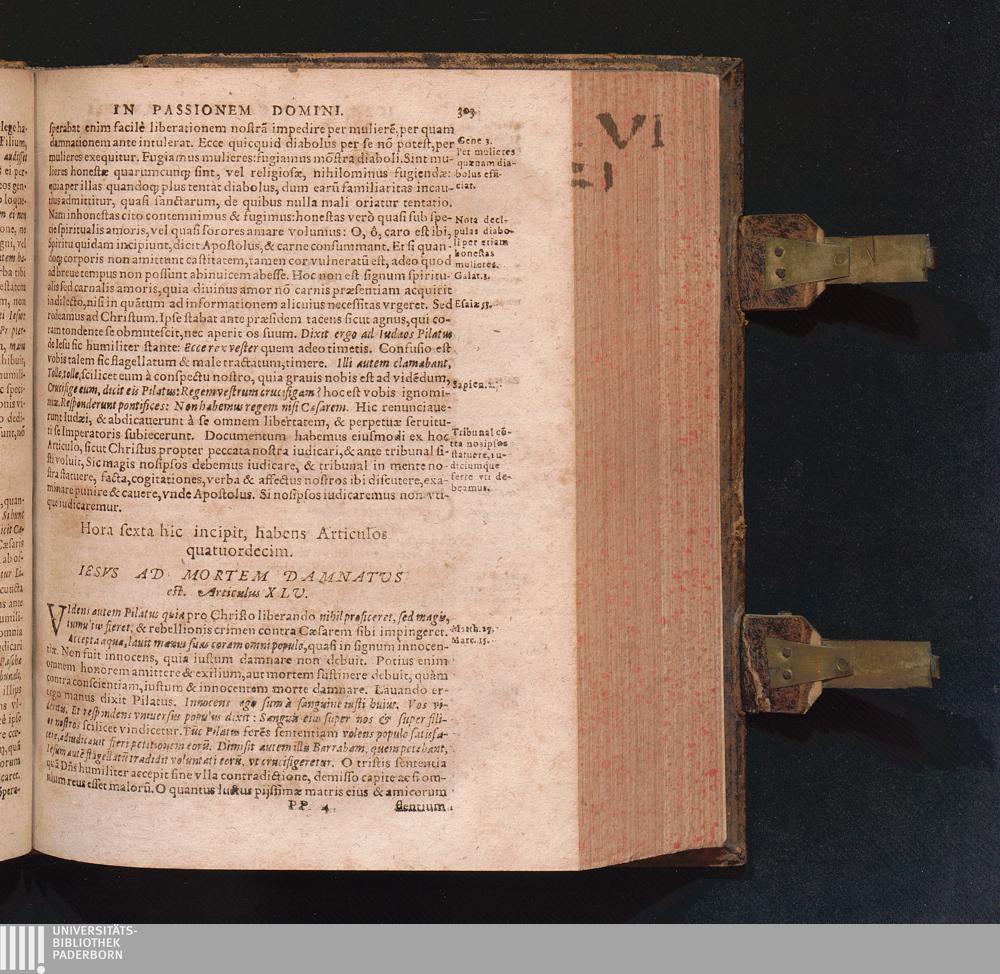 IN PASSIONEM DOMINI. 303
sperabat enim facilè liberationem nostrā impedire per mulierē, per quam
damnationem ante intulerat. Ecce quicquid diabolus per se nō potest, per
mulieres exequitur. Fugiamus mulieres: fugiamus mōstra diaboli. Sint mu-
lieres honestæ quarumcunq; sint, vel religiosæ, nihilominus fugiendæ:
quia per illas quandoq; plus tentāt diabolus, dum earū familiaritas incau-
tius admittitur, quasi sanctarum, de quibus nulla mali oriatur tentatio.
Nam inhonestas cito contemnimus & fugimus: honestas verò quasi sub spe-
cie spiritualis amoris, vel quasi sorores amare volumus: O, ô, caro est ibi,
Spiritu quidam incipiunt, dicit Apostolus, & carne consummant. Et si quan-
doq; corporis non amittunt castitatem, tamen cor vulneratū est, adeo quod
ad breue tempus non possunt abinuicem abesse. Hoc non est signum spiritu-
alis sed carnalis amoris, quia diuinus amor nō carnis præsentiam acquirit
in dilecto, nisi in quātum ad informationem alicuius necessitas vrgeret. Sed
redeamus ad Christum. Ipse stabat ante præsidem tacens sicut agnus, qui co-
ram tondente se obmutescit, nec aperit os suum. Dixit ergo ad Iudæos Pilatus
de Iesu sic humiliter stante: Ecce rex vester quem adeo timetis. Confusio est
vobis talem sic flagellatum & male tractatum, timere. Illi autem clamabant,
Tolle, tolle, scilicet eum à conspectu nostro, quia grauis nobis est ad vidēdum,
Crucifige eum, dicit eis Pilatus: Regem vestrum crucifigam? hoc est vobis ignomi-
niæ. Responderunt pontifices: Non habemus regem nisi Cæsarem. Hic renunciaue-
runt Iudæi, & abdicauerunt à se omnem libertatem, & perpetuæ seruitu-
ti se Imperatoris subiecerunt. Documentum habemus eiusmodi ex hoc
Articulo, sicut Christus propter peccata nostra iudicari, & ante tribunal si-
sti voluit, Sic magis nosipsos debemus iudicare, & tribunal in mente no-
stra statuere, facta, cogitationes, verba & affectus nostros ibi discutere, exa-
minare punire & cauere, vnde Apostolus. Si nosipsos iudicaremus non vti-
que iudicaremur.
Gene 3.
Per mulieres
quænam dia-
bolus effi-
ciat.
Nota
pulas diabo-
li per etiam
honestas
mulieres.
Galat. 3.
Esaiæ 53.
Sapien. 2.
Tribunal cō-
tra nosipsos
statuere, iu-
diciumque
ferre vti de-
beamus.
Hora sexta hic incipit, habens Articulos
quatuordecim.
IESVS AD MORTEM DAMNATVS
est. Articulus XLV.
VIdens autem Pilatus quia pro Christo liberando nihil proficeret, sed magis,
tumultus fieret, & rebellionis crimen contra Cæsarem sibi impingeret.
Accepta aqua, lauit manus suas coram omni populo, quasi in signum innocen-
tiæ. Non fuit innocens, quia iustum damnare non debuit. Potius enim
omnem honorem amittere & exilium, aut mortem sustinere debuit, quàm
contra conscientiam, iustum & innocentem morte damnare. Lauando er-
ergo manus dixit Pilatus. Innocens ego sum à sanguine iusti huius. Vos vi-
deritis. Et respondens vniuersus populus dixit: Sanguis eius super nos & super fili-
os nostros scilicet vindicetur. Tūc Pilatus ferēs sententiam volens populo satisfa-
cere, adiudicauit fieri petitionem eorū. Dimisit autem illis Barrabam, quem petebant,
Iesum autē flagellatū tradidit voluntati eorū, vt crucifigeretur. O tristis sententia
quā Dn̄s humiliter accepit sine vlla contradictione, demisso capite ac si om-
nium reus esset malorū. O quantus luctus pijssimæ matris eius & amicorum
Matth. 27.
Marc. 15.
PP 4 flentium
VI
UNIVERSITÄTS-
BIBLIOTHEK
PADERBORN